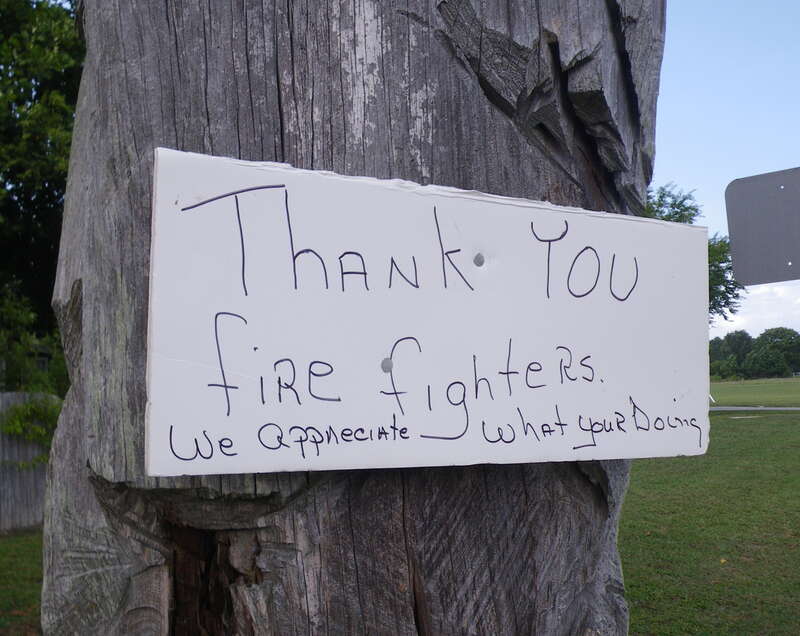 Thank You
fire fighters.
We appreciate what your Doing